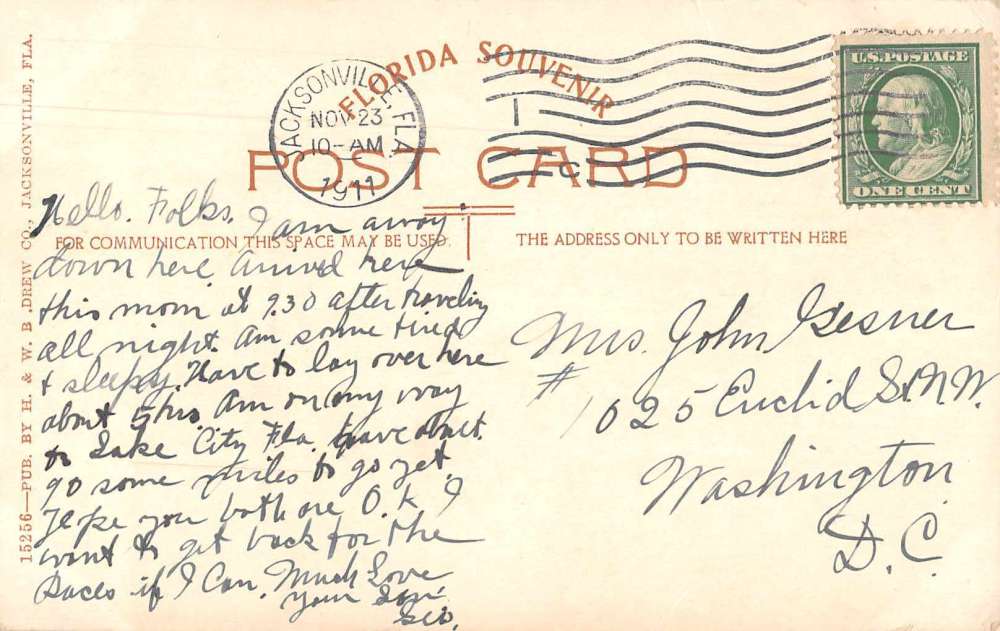 15256—PUB. BY H. & W. B. DREW CO., JACKSONVILLE, FLA.
FLORIDA SOUVENIR
POST CARD
JACKSONVILLE, FLA.
NOV 23
10-AM
1911
U.S. POSTAGE
ONE CENT
FOR COMMUNICATION THIS SPACE MAY BE USED.
THE ADDRESS ONLY TO BE WRITTEN HERE
Hello. Folks. I am away
down here arived here
this morn at 9.30 after traveling
all night. Am some tired
& sleepy. Have to lay over here
about 5 hrs. Am on my way
to Lake City Fla. have about
90 some miles to go yet.
Hope you both are O.K. I
want to get back for the
Races if I Can. Much Love
Your Son
Geo.
Mrs. John Gesner
# 1025 Euclid St. N.W.
Washington
D.C.